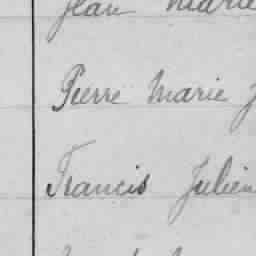 Jean Marie
Pierre Marie J
Francis Julien